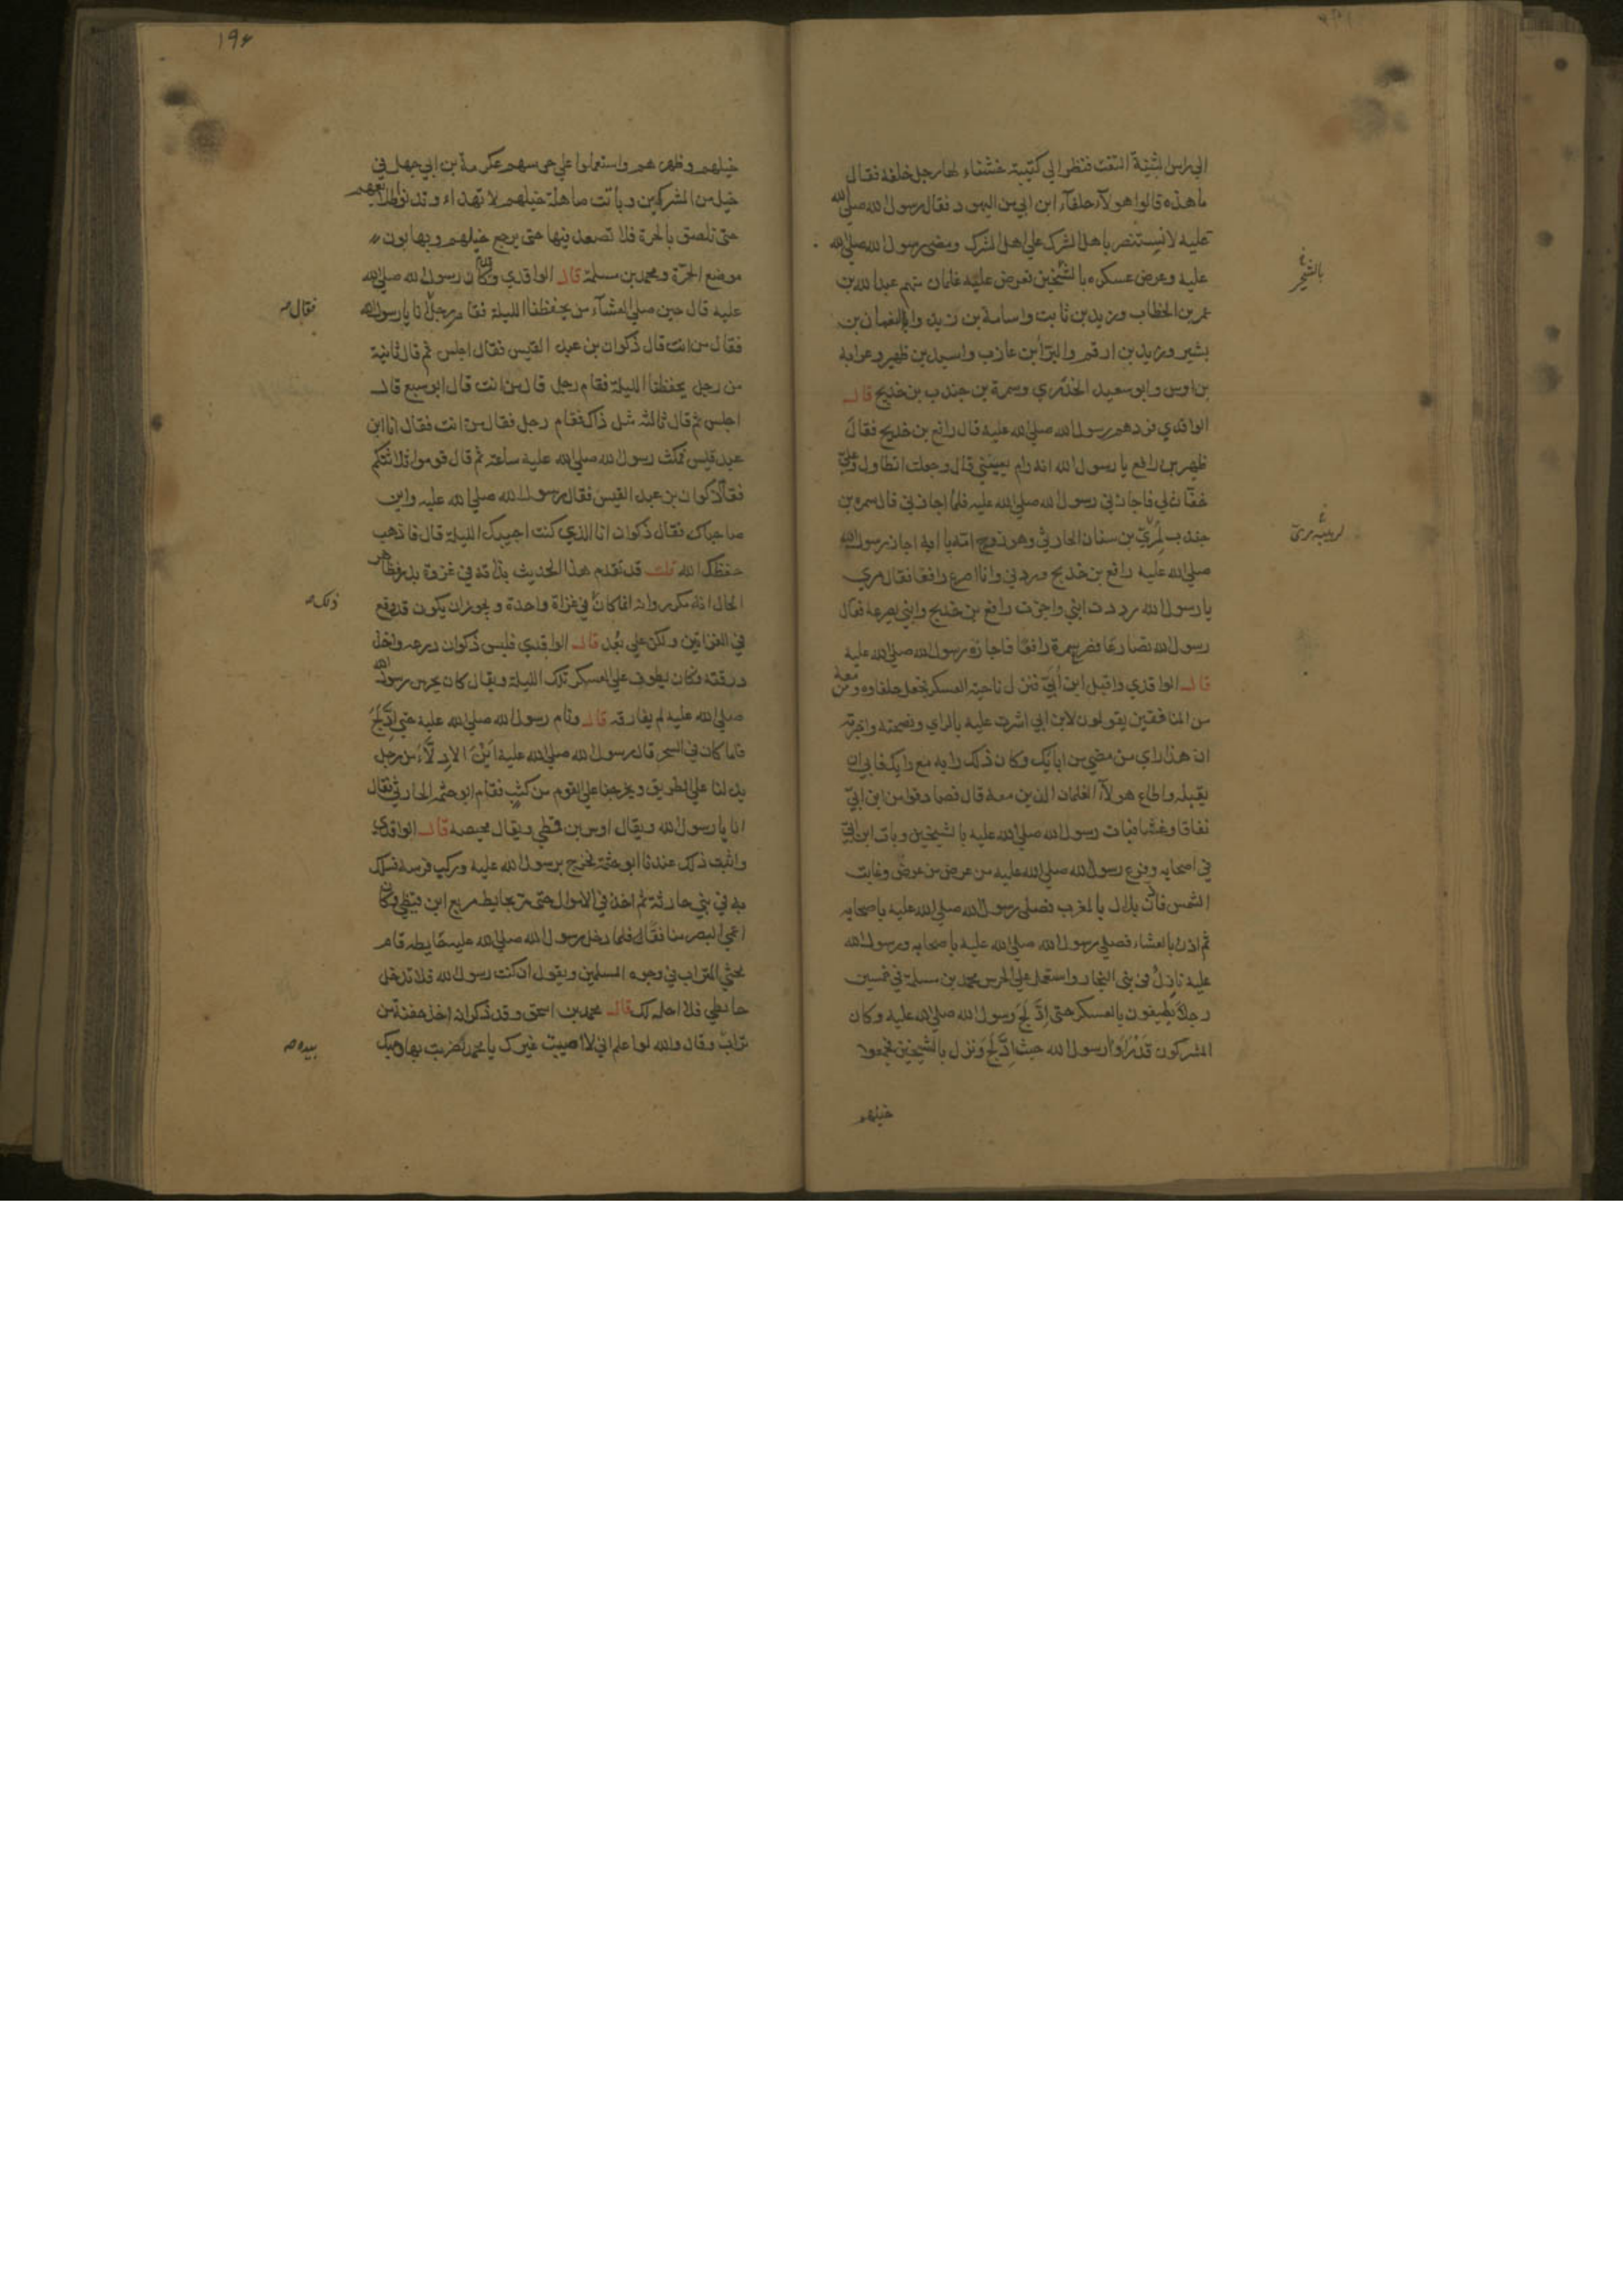 الي راس الثنية التفت فنظر الي كتيبة خشناء لها رجل خلفه فقال
ما هذه قالوا هولآء حلفآء ابن ابي من اليهود فقال رسول الله صلي الله
عليه لا نستنصر باهل الشرك علي اهل الشرك ومضي رسول الله صلي الله
عليه وعرض عسكره بالشيخين فعرض عليه غلمان منهم عبد الله بن
عمر بن الخطاب وزيد بن ثابت واسامة بن زيد والنعمان بن
بشير وزيد بن ارقم والبرآ بن عازب واسيد بن ظهير وعرابة
بن اوس وابو سعيد الخدري وسمرة بن جندب بن خديج قال
الواقدي فردهم رسول الله صلي الله عليه قال رافع بن خديج فقال
ظهير بن رافع يا رسول الله انه رام يعينني قال وجعلت اتطاول وعلي
خفان لي فاجازني رسول الله صلي الله عليه فلما اجازني قال سمره بن
جندب لمري بن سنان الحارثي وهو زوج امه يا ابه اجاز رسول الله
صلي الله عليه رافع بن خديج وردني وانا اصرع رافعا فقال مري
يا رسول الله رددت ابني واجزت رافع بن خديج وابني يصرعه فقال
رسول الله تصارعا فصرع سمرة رافعا فاجازه رسول الله صلي الله عليه
قال الواقدي واقبل ابن أبي فنزل ناحية العسكر فجعل حلفاوه ومن معه
من المنافقين يقولون لابن ابي اشرت عليه بالراي ونصحته واخبرته
ان هذا راي من مضي من ابائك وكان ذلك رايه مع رايك فابي ان
يقبله واطاع هولآء الغلمان الذين معه قال فصادفوا من ابن ابي
نفاقا وغشا فبات رسول الله صلي الله عليه بالشيخين وبات ابن ابي
في اصحابه وفرغ رسول الله صلي الله عليه من عرض من عرض وغابت
الشمس فاذن بلال بالمغرب فصلي رسول الله صلي الله عليه باصحابه
ثم اذن بالعشاء فصلي رسول الله صلي الله عليه باصحابه ورسول الله
عليه نازل في بني النجار واستعمل علي الحرس محمد بن مسلمة في خمسين
رجلا يطيفون بالعسكر حتى ادلج رسول الله صلي الله عليه وكان
المشركون قد رأوا رسول الله حيث ادلج ونزل بالشيخين فجمعوا
خيلهم
١٩٤
خيلهم وظهرهم واستعملوا علي حرسهم عكرمة بن ابي جهل في
خيل من المشركين وباتت صاهلة خيلهم لا تهداء وتدنو طلايعهم
حتي تلصق بالحرة فلا تصعد فيها حتى يرجع خيلهم ويهابون
موضع الحرة ومحمد بن مسلمة قال الواقدي وكان رسول الله صلي الله
عليه قال حين صلي العشآء من يحفظنا الليلة فقام رجل انا يا رسول الله
فقال من انت قال ذكوان بن عبد القيس فقال اجلس ثم قال ثانية
من رجل يحفظنا الليلة فقام رجل قال من انت قال ابو سبع قال
اجلس ثم قال ثالثة مثل ذاك فقام رجل فقال من انت فقال انا ابن
عبد قيس فمكث رسول الله صلي الله عليه ساعة ثم قال قوموا ثلاثتكم
فقام ذكوان بن عبد القيس فقال رسول الله صلي الله عليه واين
صاحباك فقال ذكوان انا الذي كنت اجيبك الليلة قال فاذهب
حفظك الله قلت قد تقدم هذا الحديث بذاته في غزوة بدر فظاهر
الحال انه مكرر وانه انما كان في غزاة واحدة ويجوز ان يكون قد وقع
في الغزاتين ولكن علي بعد قال الواقدي فلبس ذكوان درعه واخذ
درقته فكان يطوف علي العسكر تلك الليلة ويقال كان يحرس رسول الله
صلي الله عليه لم يفارقه قال ونام رسول الله صلي الله عليه حتي ادلج
فلما كان في السحر قال رسول الله صلي الله عليه اين الادلآء من رجل
يدلنا علي الطريق ويخرجنا علي القوم من كثب فقام ابو حثمه الحارثي فقال
انا يا رسول الله ويقال اوس بن قيظي ويقال محيصه قال الواقدي
واثبت ذلك عندنا ابو حثمة فخرج برسول الله عليه وركب فرسه فسلك
به في بني حارثة ثم اخذ في الاموال حتى مر بحايط مربع ابن قيظي وكان
اعمي البصر منافقا فلما دخل رسول الله صلي الله عليه حايطه قام
يحثي التراب في وجوه المسلمين ويقول ان كنت رسول الله فلا تدخل
حايطي فلا احله لك قال محمد بن اسحق وقد ذكر انه اخذ حفنة من
تراب وقال والله لو اعلم اني لا اصيب غيرك يا محمد لضربت بها وجهك
فقال
ذلك
بيده